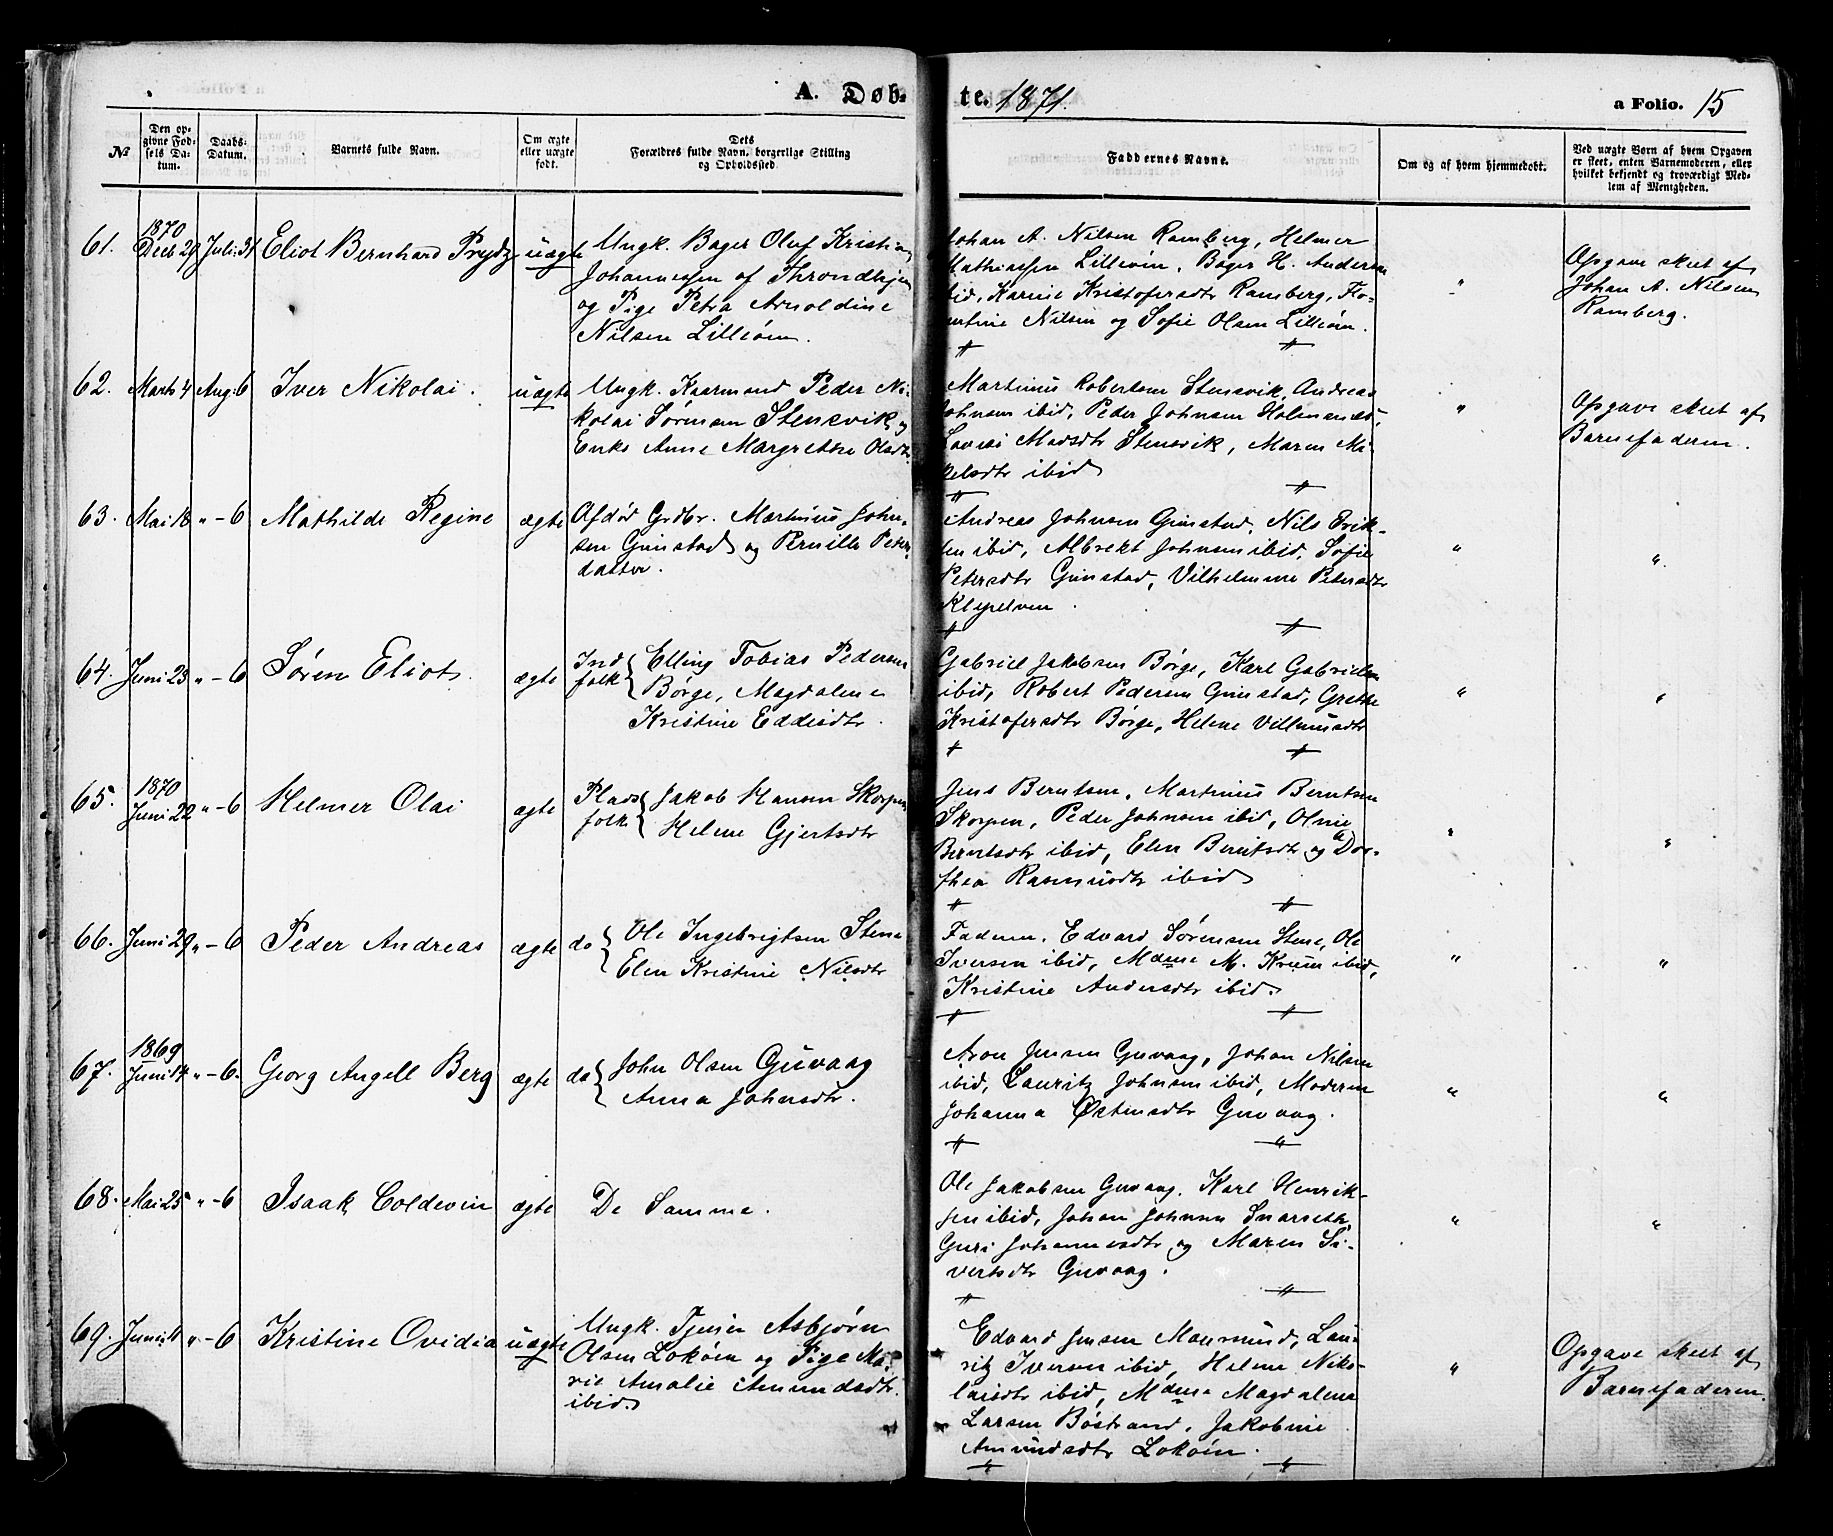 A. Døb-
te. 1871.
a Folio. 15
№
Den op-
givne Fød-
sels Da-
tum.
Daabs-
Datum.
Barnets fulde Navn.
Om ægte
eller uægte
født.
Dets
Forældres fulde Navn, borgerlige Stilling
og Opholdssted.
Faddernes Navne.
Om og af hvem hjemmedøbt.
Ved uægte Børn af hvem Opgaven
er skeet, enten Barnemoderen, eller
hvilket bekjendt og troværdigt Med-
lem af Menigheden.
61.
1870
Decb 29
Juli 31
Eliot Bernhard Prydz
uægte
Ungk. Bager Oluf Kristian
Johannessen af Throndhjem
og Pige Petra Arnoldine
Nilsen Lilleöen.
Johan A. Nilsen Ramberg, Helmer
Mathiassen Lilleöen, Bager H. Andersen
ibid, Karine Kristofersdtr Ramberg, Flo-
rentine Nilsen og Sofie Olsen Lilleöen.
"
Opgave skeet af
Johan A. Nilsen
Ramberg.
62.
Marts 4
Aug. 6
Iver Nikolai.
uægte
Ungk. Kaarmand Peder Ni-
kolai Sörensen Stensvik og
Enke Anne Margrethe Olsdtr
Martinus Robertsen Stensvik, Andreas
Johnsen ibid, Peder Johnsen Holmsnæs,
Lovise Madsdtr Stensvik, Maren Mi-
kelsdtr ibid
"
Opgave skeet af
Barnefaderen.
63.
Mai 18
" - 6
Mathilde Regine
ægte
Afdöd Grdbr. Martinus John-
sen Gimstad og Pernille Peters-
datter.
Andreas Johnsen Gimstad, Nils Erik-
sen ibid, Albrekt Johnsen ibid, Sofie
Petersdtr Gimstad, Vilhelmine Petersdtr
Klepelven.
"
"
64.
Juni 23
" - 6
Sören Eliot.
ægte
Ind
folk
Elling Tobias Pedersen
Börge, Magdalena
Kristine Eddisdtr.
Gabriel Jakobsen Börge, Karl Gabrielsen
ibid, Robert Pedersen Gimstad, Grethe
Kristofersdtr Börge, Helene Villumsdtr
"
"
65.
1870
Juni 22
" - 6
Helmer Olai
ægte
Plads
folk
Jakob Hansen Skorpen
Helene Gjertsdtr
Jens Berntsen, Martinus Berntsen
Skorpen, Peder Johnsen ibid, Oline
Berntsdtr ibid, Elen Berntsdtr og Dor-
thea Rasmusdtr ibid
"
"
66.
Juni 29
" - 6
Peder Andreas
ægte
do
Ole Ingebrigtsen Stene
Elen Kristine Nilsdtr
Faderen, Edvard Sörensen Stene, Ole
Iversen ibid, Mdme M. Krum ibid,
Kristine Andersdtr ibid.
"
"
67.
1869
Juni 14
" - 6.
Georg Angell Berg
ægte
do
John Olsen Guvaag
Anna Johnsdtr.
Aron Jensen Guvaag, Johan Nilsen
ibid, Lauritz Johnsen ibid, Moderen
Johanna Östensdtr Guvaag.
"
"
68.
Mai 25
" - 6
Isaak Coldevin
ægte
De Samme.
Ole Jakobsen Guvaag, Karl Henrik-
sen ibid, Johan Johnsen Snarseth,
Guri Johannesdtr og Maren Si-
vertsdtr Guvaag.
"
"
69.
Juni 11
" - 6
Kristine Ovidia
uægte
Ungk. Tjener Asbjörn
OlsenLoköen og Pige Ma-
rie Amalie Amundsdtr
ibid.
Edvard Jensen Maurnund, Lau-
ritz Iversen ibid, Helene Niko-
laisdtr ibid, Mdme Magdalena
Larsen Böstrand, Jakobine
Amundsdtr Loköen.
"
Opgave skeet af
Barnefaderen.